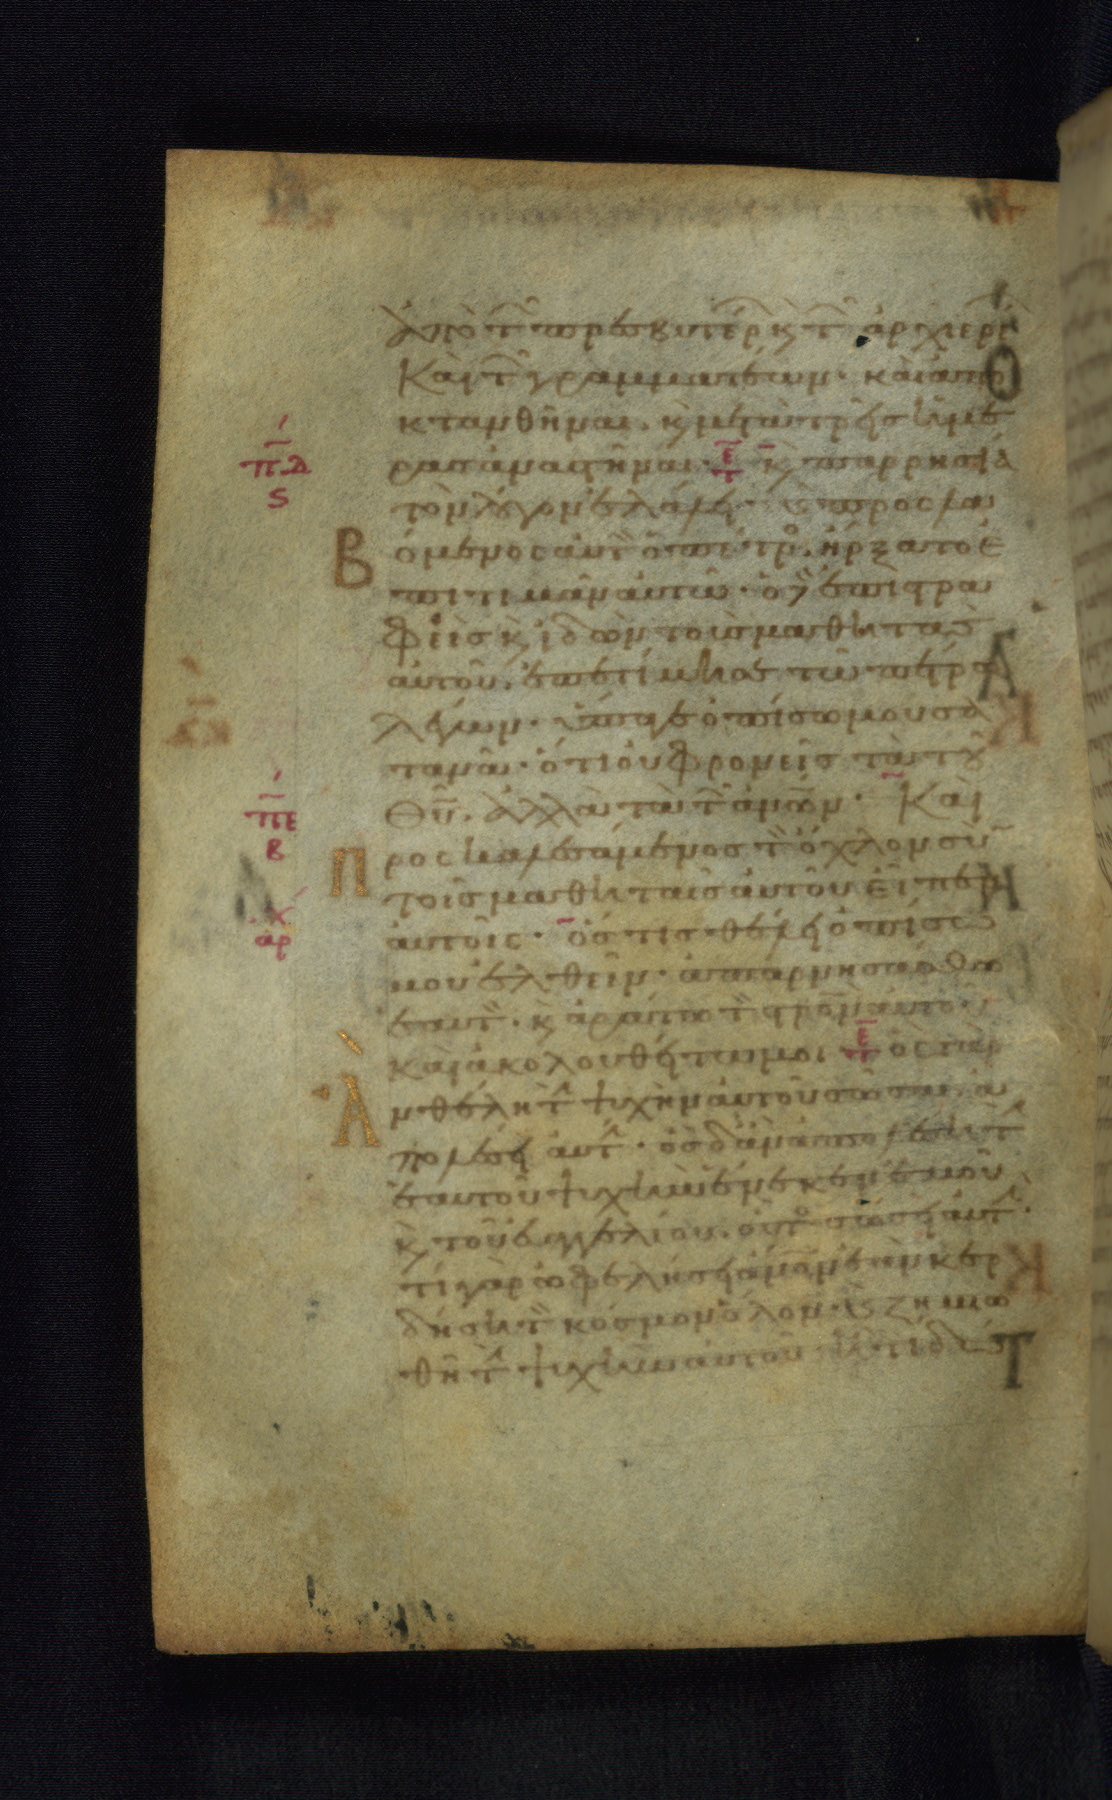 ἀπὸ τ̑ πρεσβυτέρ κ̀ τ̑ ἀρχιερέ
Καὶ τ̑ γραμματέων· καὶ ἀπο
κτανθῆναι. κ̀ μετὰ τρεῖς ἡμέ
ρας ἀναστῆναι· κ̀ παρρησία
τὸν λόγον ἐλάλει· κ̀ προσλα
Βόμενος αὐτ̀ ὁ πέτρο. ἤρξατο ἐ
πιτιμᾶν αὐτῶ· ὁ δ̀ ἐπιστρα
φεὶς κ̀ ἰδὼν τοὺς μαθητὰς
αὐτοῦ. ἐπετίμησε τῶ πέτρω
λέγων· ὕπαγε ὀπίσω μου σα
τανᾶ· ὅτι οὐ φρονεῖς τὰ τ̑
θῡ. ἀλλὰ τὰ τ̑ ἀνω̄ν· Καὶ
Προσκαλεσάμενος τ̀ ὄχλον σὺ
τοῖς μαθηταῖς αὐτοῦ εἶπεν
αὐτοῖς· ὅστις θέλει ὀπίσω
μου ἐλθεῖν· ἀπαρνησάσθω
ἑαυτ̀. κ̀ ἀράτω τ̀ στρο̄ν αὐτοῦ
καὶ ἀκολουθείτω μοι ὃς γὰρ
Ἂν θέλη τ̀ ψυχὴν αὐτοῦ σῶσαι. ἀ
πολέσει αὐτ̀· ὃς δ' ἂν ἀπολέση τ̀
ἑαυτοῦ ψυχὴν ἕνεκεν ἐμοῦ
κ̀ τοῦ εὐαγγελίου. οὗτο σώσει αὐτ̀·
τί γὰρ ὠφελήσει ἄνο̄ν ἐὰν κερ
δήση τ̀ κόσμον ὅλον. κ̀ ζημιω
θῆ τ̀ ψυχὴν αὐτοῦ ἢ τί δώσ
π̄δ
ς
π̄ε
β
ἀρχ